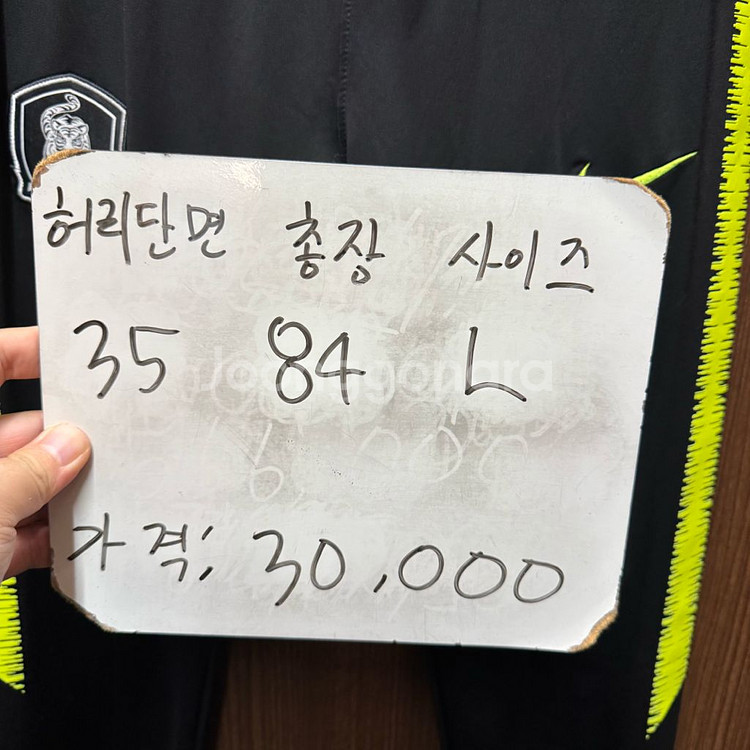 허리단면 총장 사이즈
35 84 L
Joonggonara
가격; 30,000